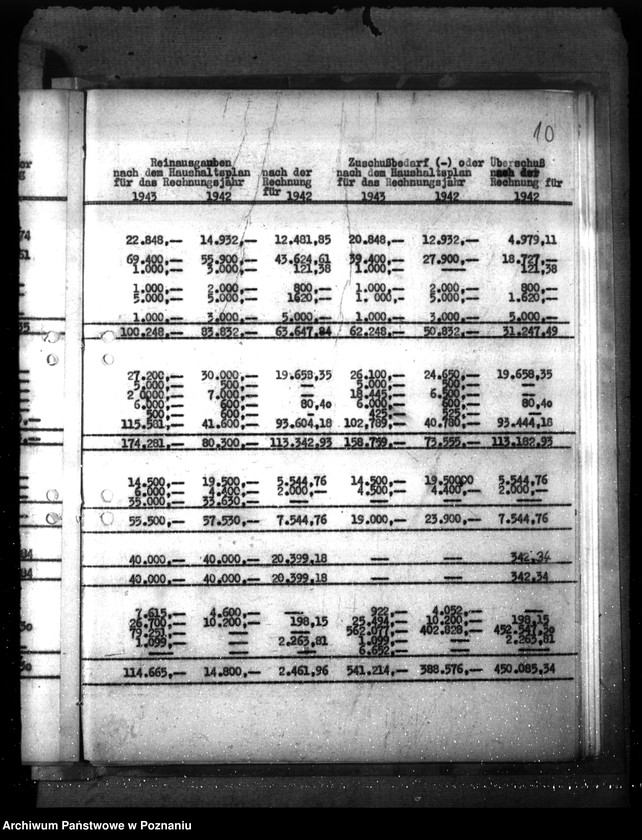 10
Reinausgaben Zuschußbedarf (-) oder Überschuß
nach dem Haushaltsplan nach der nach dem Haushaltsplan nach der
für das Rechnungsjahr Rechnung für das Rechnungsjahr Rechnung für
für
1943 1942 1942 1943 1942 1942
22.848,— 14.932,— 12.481,85 20.848,— 12.932,— 4.979,11
69.400,— 55.900,— 43.624,61 39.400,— 27.900,— 18.727,—
1.000,— 3.000,— 121,38 1.000,— —— 121,38
1.000,— 2.000,— 800,— 1.000,— 2.000,— 800,—
5.000,— 5.000,— 1620,— 1.000,— 5.000,— 1.620,—
1.000,— 3.000,— 5.000,— 1.000,— 3.000,— 5.000,—
100.248,— 83.832,— 63.647,84 62.248,— 50.832,— 31.247,49
27.200,— 30.000,— 19.658,35 26.100,— 24.650,— 19.658,35
5.000,— 500,— — 5.000,— 500,— —
2.0000,— 7.000,— — 18.445,— 6.500,— —
6.000,— 600,— 80,40 6.000,— 600,— 80,40
500,— 600,— — 425,— 525,— —
115.581,— 41.600,— 93.604,18 102.789,— 40.780,— 93.444,18
174.281,— 80.300,— 113.342,93 158.759,— 73.555,— 113.182,93
14.500,— 19.500,— 5.544,76 14.500,— 19.50000 5.544,76
6.000,— 4.400,— 2.000,— 4.500,— 4.400,— 2.000,—
35.000,— 33.630,— —— —— —— ——
55.500,— 57.530,— 7.544,76 19.000,— 23.900,— 7.544,76
40.000,— 40.000,— 20.399,18 —— —— 342,34
40.000,— 40.000,— 20.399,18 —— —— 342,34
7.615,— 4.600,— —— 922,— 4.052,— ——
26.700,— 10.200,— 198,15 25.494,— 10.200,— 198,15
79.251,— — — 562.077,— 402.828,— 452.547,30
1.099,— — 2.263,81 1.099,— — 2.263,81
—— — — 6.652,— — —
114.665,— 14.800,— 2.461,96 541.214,— 388.576,— 450.085,34
Archiwum Państwowe w Poznaniu